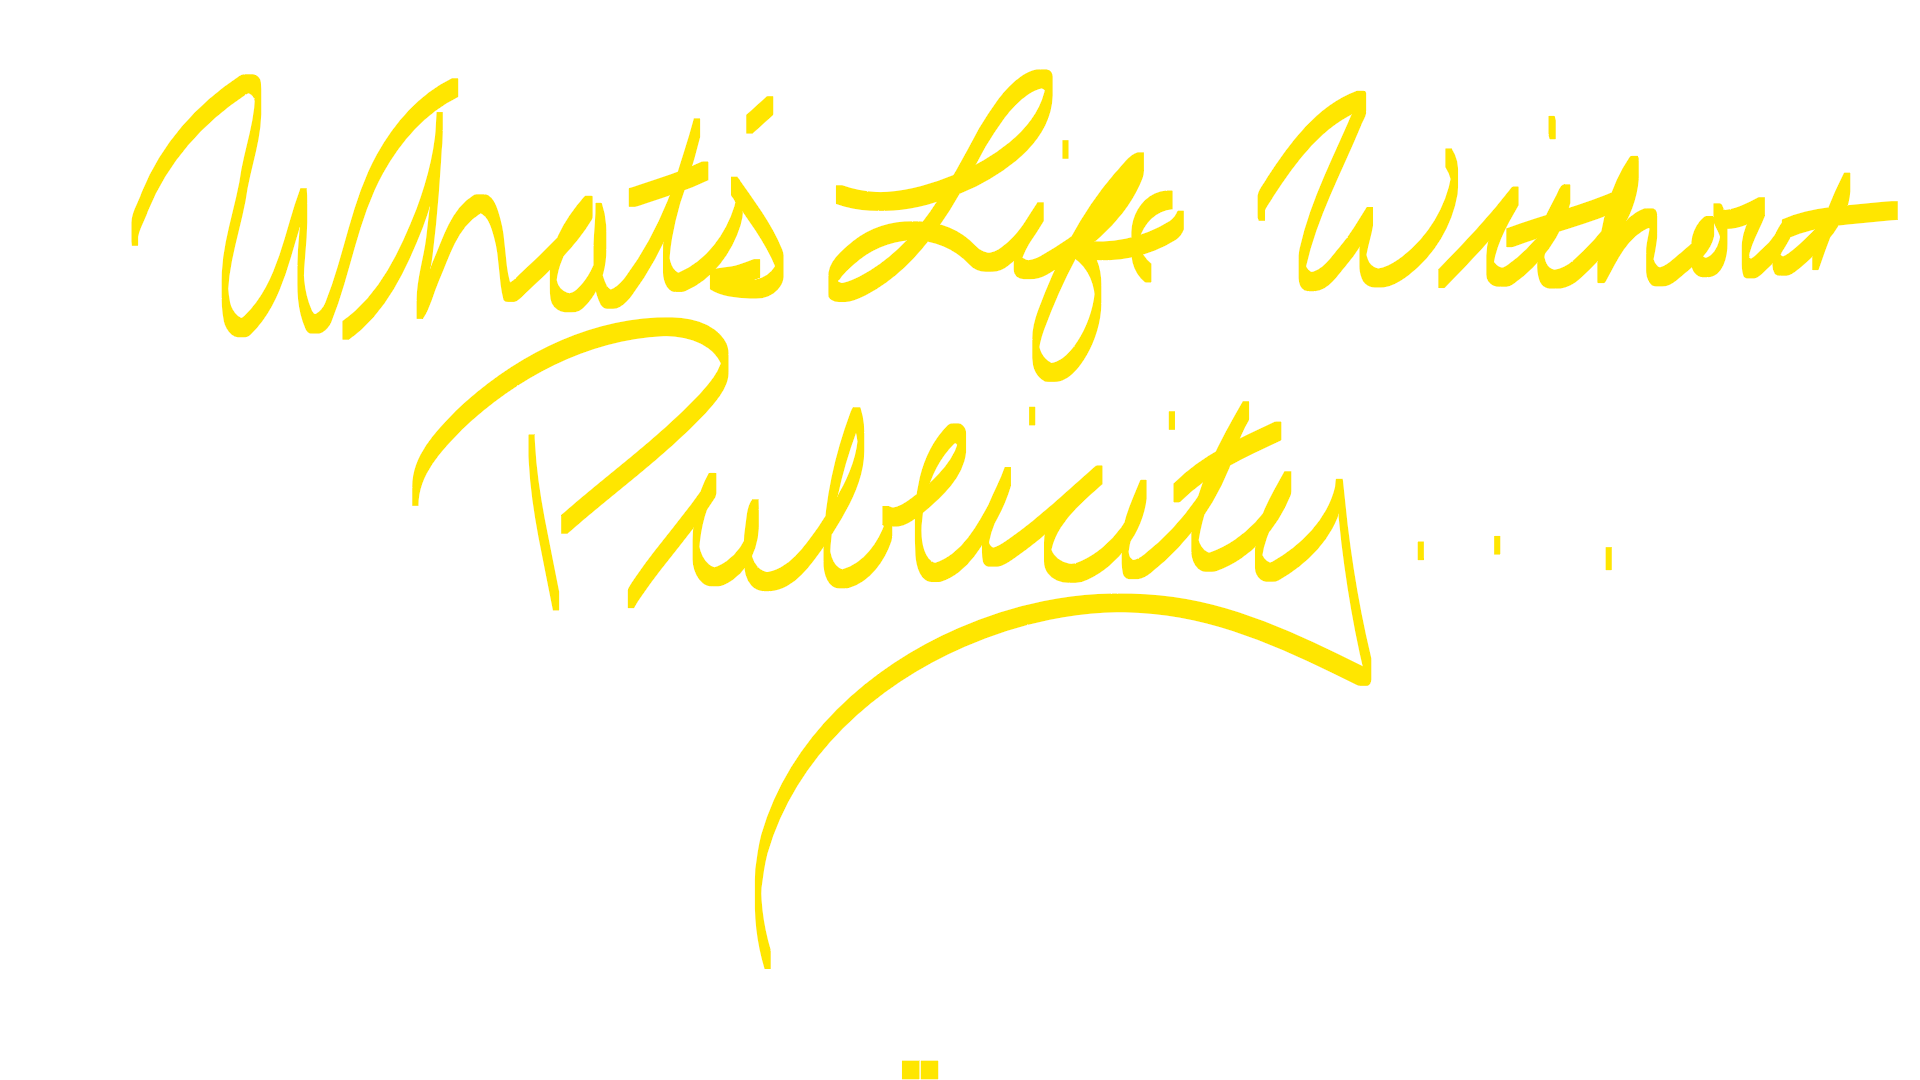 What's Life Without
Publicity...